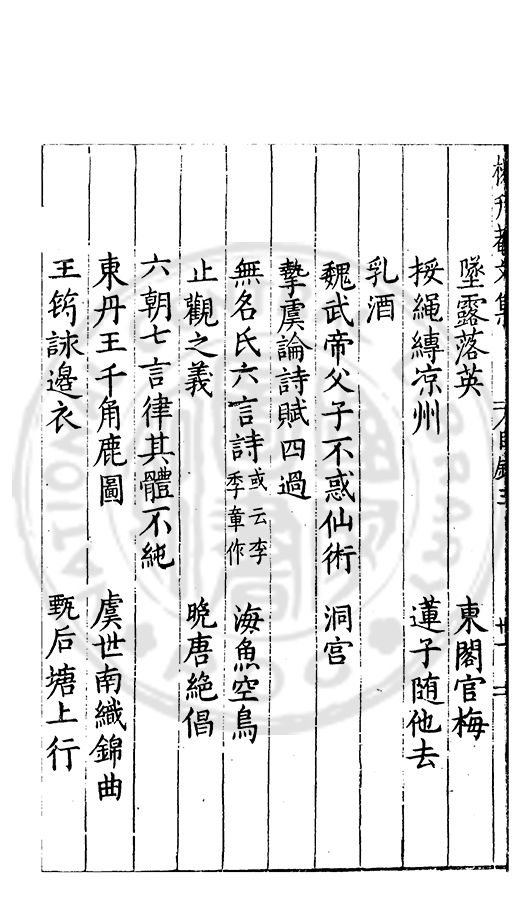 墜露落英　東閣官梅
挼繩縳凉州　蓮子随他去
乳酒
魏武帝父子不惑仙術　洞宫
摯虞論詩賦四過
無名氏六言詩或云李季章作　海魚空鳥
止觀之義　晚唐絶倡
六朝七言律其體不純
東丹王千角鹿圖　虞世南織錦曲
王筠詠邊衣　甄后塘上行